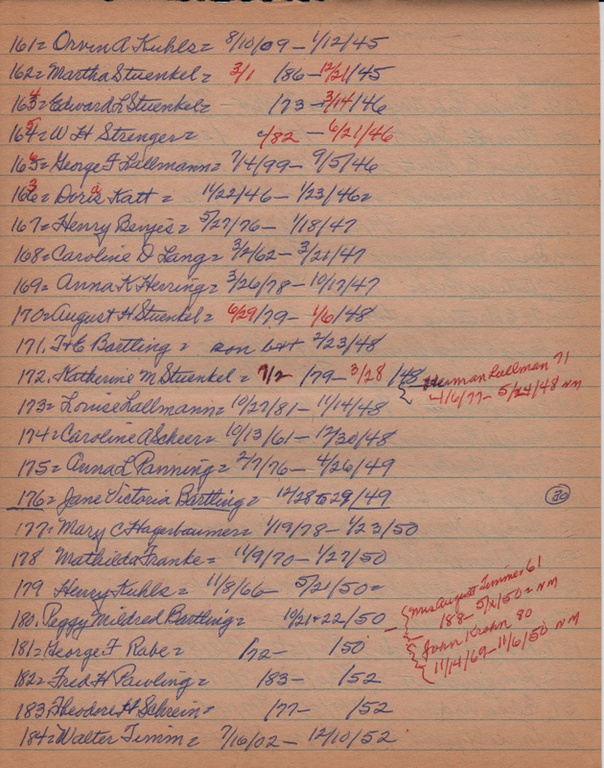 161= Orvin A Kuhls= 8/10/09 - 1/12/45
162= Martha Stuenkel= 3/1 /86 - 12/21/45
164= Edward L Stuenkel= /73 - 3/14/46
165= W H Strenger= /82 - 6/21/46
166= George F Lallmann= 7/4/99 - 9/5/46
163= Doris Katt = 11/22/46 - 1/23/46=
167= Henry Benjes= 5/27/76 - 1/18/47
168= Caroline D Lang= 3/2/62 - 3/21/47
169= Anna K Herring= 3/26/78 - 10/17/47
170= August H Stuenkel= 6/29/79 - 1/6/48
171. T+E Bartling = son b++ 2/23/48
172. Katherine M Stuenkel = 7/2 /79 - 3/28 /48
Herman Lallman 71
4/6/77 - 5/24/48 NM
173= Louise Lallmann= 10/27/81 - 11/14/48
174= Caroline A Scheer= 10/13/61 - 12/30/48
175= Anna L Panning= 2/7/76 - 4/26/49
176= Jane Victoria Bartling= 12/28 to 29/49 30
177= Mary C Hagerbaumer= 1/19/78 - 1/23/50
178 Mathilda Franke= 11/9/70 - 1/27/50
179 Henry Kuhls= 11/8/66 - 5/21/50=
180. Peggy Mildred Bartling= 10/21+22/50
Mrs August Timmer 61
188- 5/2/50= NM
John Krohn 80
11/14/69 - 11/6/50 NM
181= George F Rabe= /72 - /50
182= Fred H Pawling= /83- /52
183 Theodore H Schrein= /77- /52
184= Walter Timm= 7/16/02 - 12/10/52